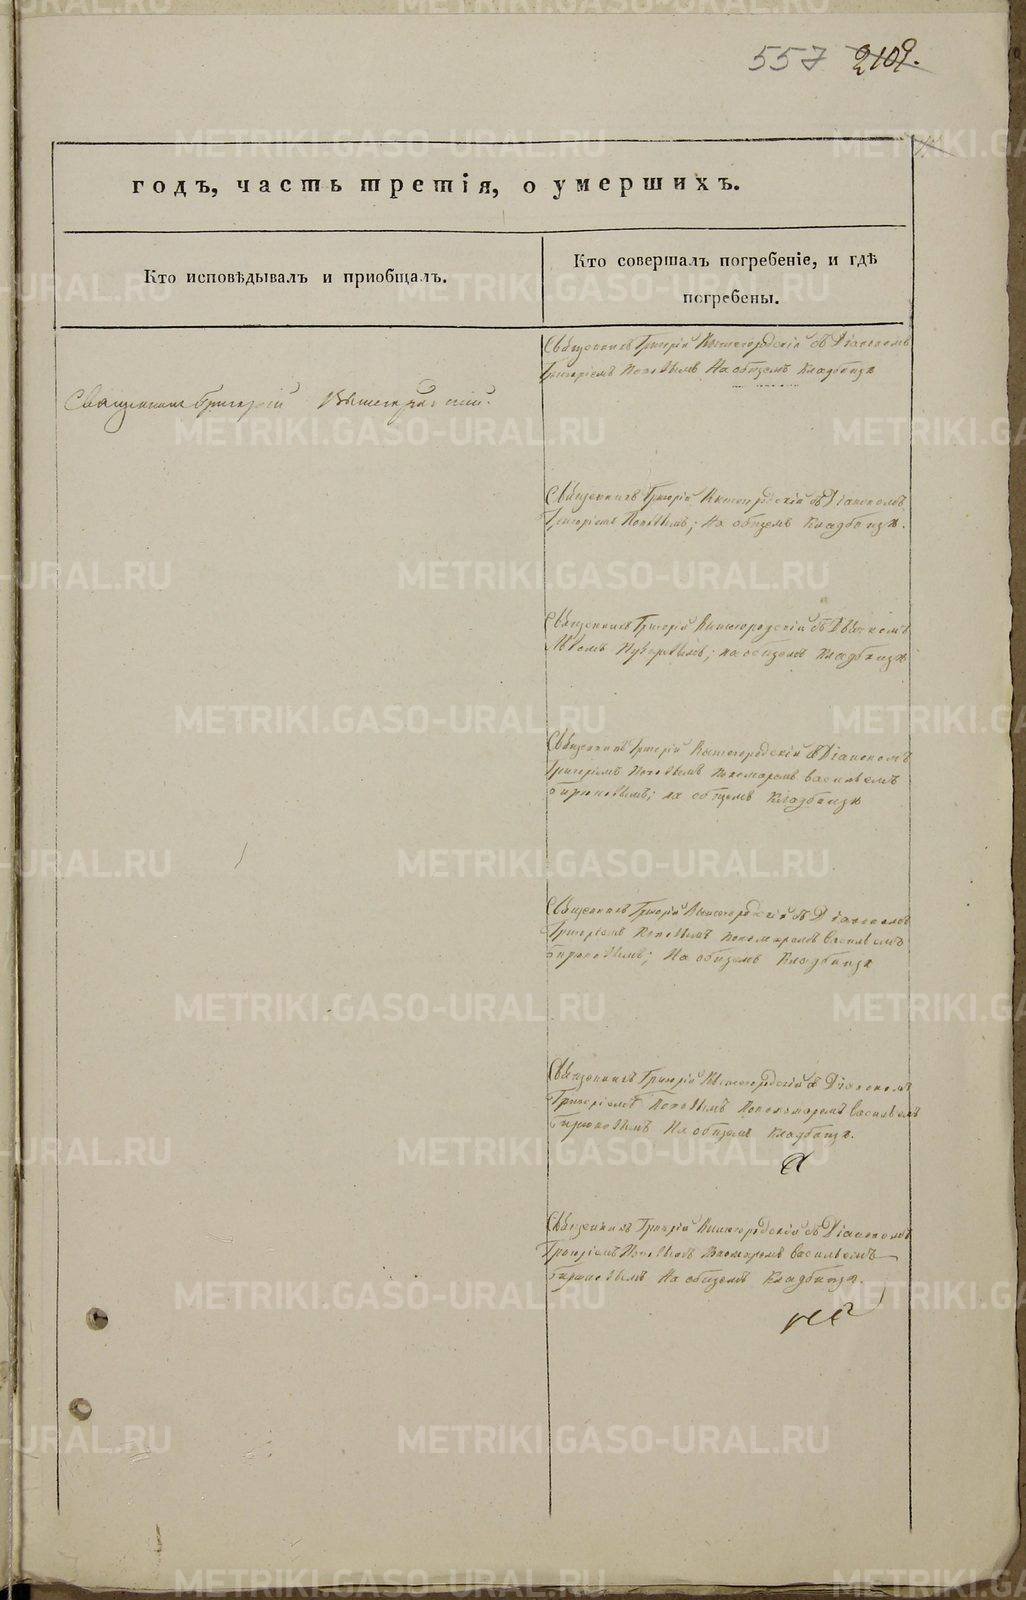 557 2109.
годъ, часть третія, о умершихъ.
Кто исповѣдывалъ и приобщалъ.
Кто совершалъ погребеніе, и гдѣ
погребены.
Священникъ Григорій Вышегородскій съ Діакономъ
Григоріемъ Поповымъ На общемъ Кладбищѣ
Священникъ Григорій Вышегородскій.
Священникъ Григорій Вышегородскій съ Діакономъ
Григоріемъ Поповымъ; На общемъ Кладбищѣ.
Священникъ Григорій Вышегородскій съ
на общемъ Кладбищѣ
Священникъ Григорій Вышегородскій съ Діакономъ
Григоріемъ Поповымъ Пономаремъ Васильемъ
Бирюковымъ; на общемъ Кладбищѣ
Священникъ Григорій Вышегородскій съ Діакономъ
Григоріемъ Поповымъ Пономаремъ Васильемъ
Бирюковымъ; На общемъ Кладбищѣ
Священникъ Григорій Вышегородскій съ Діакономъ
Григоріемъ Поповымъ Пономаремъ Васильемъ
Бирюковымъ На общемъ Кладбищѣ.
Священникъ Григорій Вышегородскій съ Діакономъ
Григоріемъ Поповымъ Пономаремъ Васильемъ
Бирюковымъ На общемъ Кладбищѣ.
METRIKI.GASO-URAL.RU